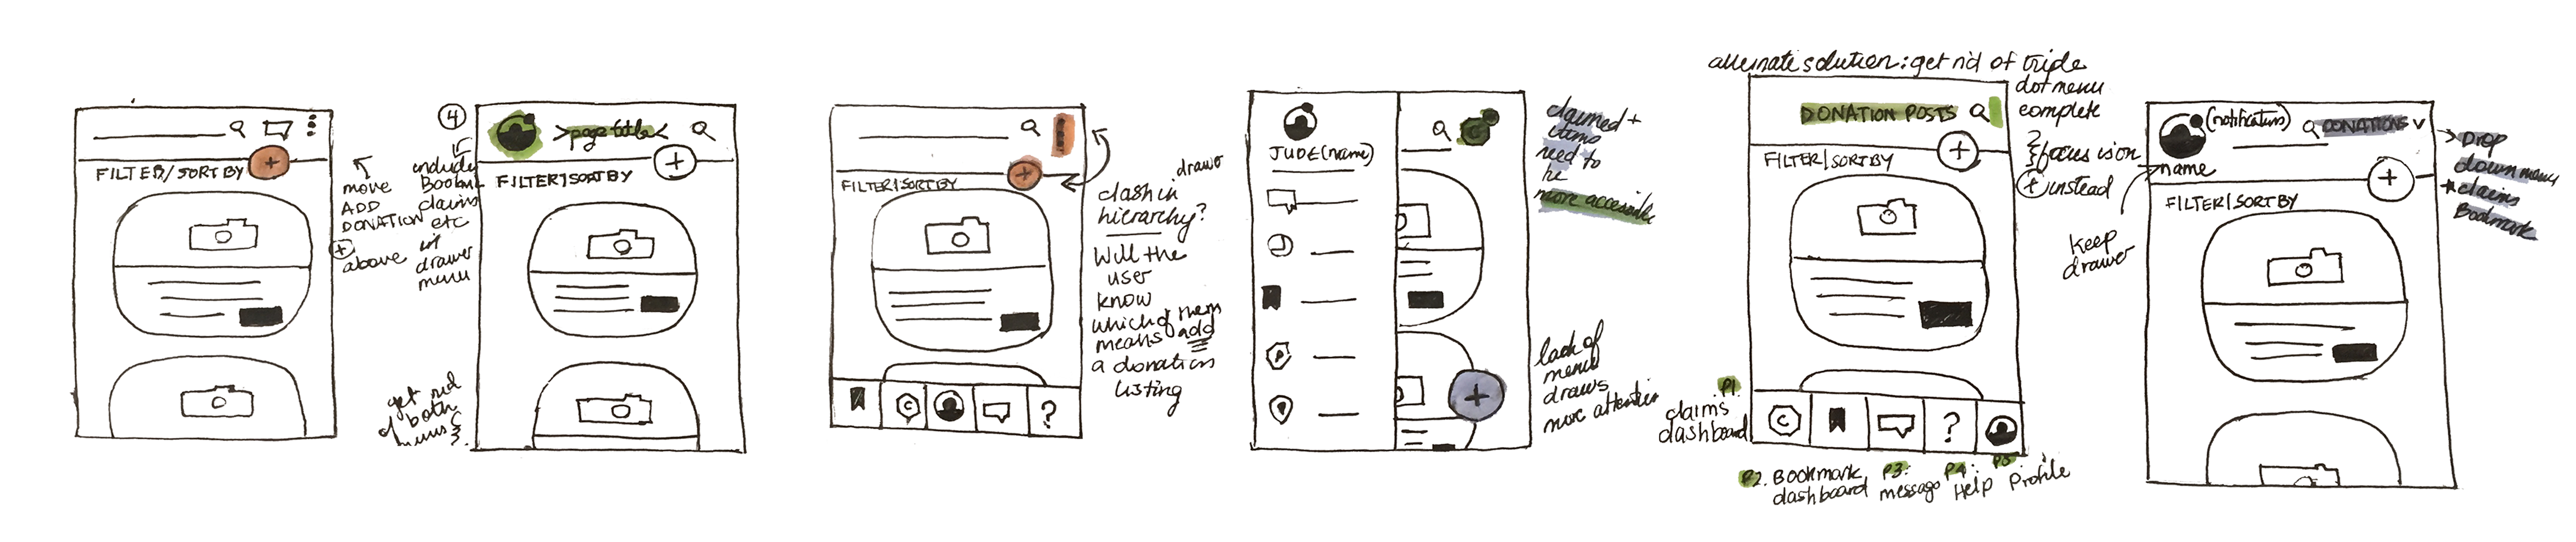 FILTER/SORT BY
+
move
ADD
DONATION
+
above
4
include
Bookm
claims
etc
in
drawer
menu
get rid
of both
menus
>page title<
FILTER|SORT BY
+
FILTER|SORTBY
+
C
?
drawer
clash in
hierarchy?
Will the
user
know
which of them
means add
a donation
listing
JUDE(name)
P
C
+
claimed +
items
need to
be
more accessible
lack of
menu
draws
more attention
alternate solution: get rid of triple
dot menu
complete
& focus is on
+ instead
DONATION POSTS
FILTER|SORT BY
+
C
?
P1.
claims
dashboard
P2. Bookmark
dashboard
P3:
message
P4:
Help
P5
Profile
(notifications)
DONATIONS v
name
FILTER|SORT BY
+
Keep
drawer
Drop
down menu
claims
Bookmark